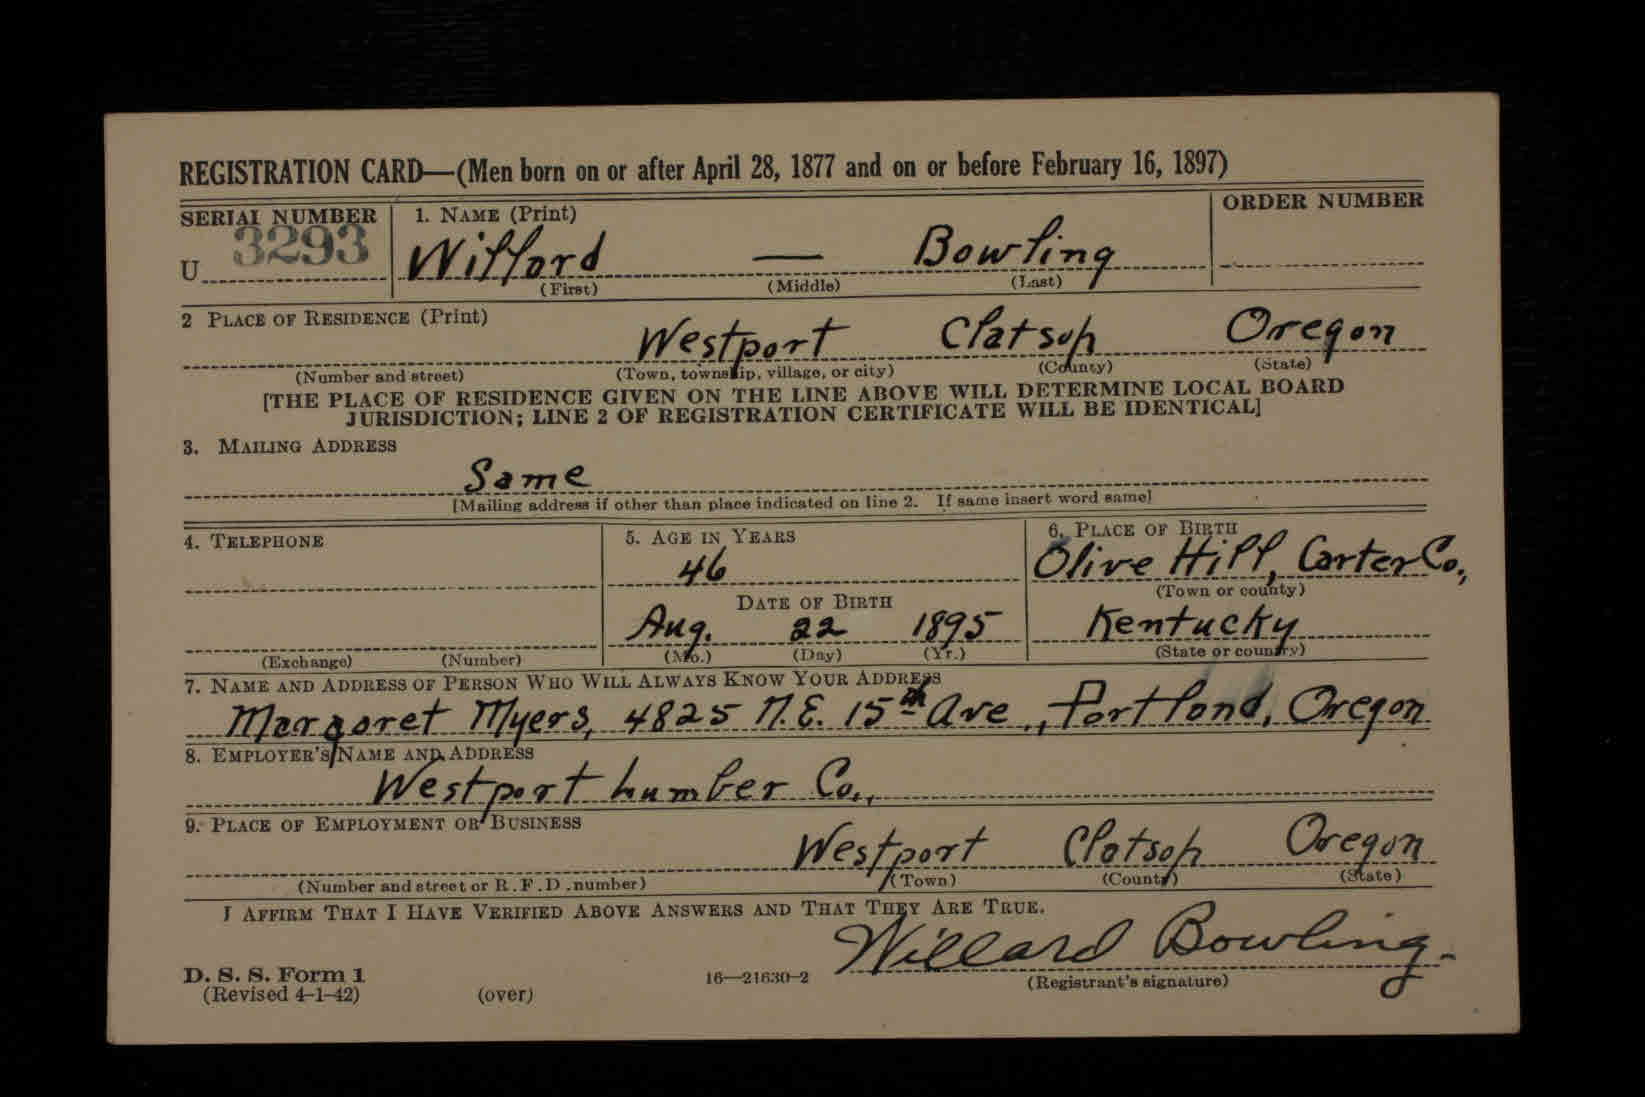 REGISTRATION CARD—(Men born on or after April 28, 1877 and on or before February 16, 1897)
SERIAL NUMBER
1. NAME (Print)
ORDER NUMBER
U 3293
Willard — Bowling
(First) (Middle) (Last)
2 PLACE OF RESIDENCE (Print)
Westport Clatsop Oregon
(Number and street) (Town, township, village, or city) (County) (State)
[THE PLACE OF RESIDENCE GIVEN ON THE LINE ABOVE WILL DETERMINE LOCAL BOARD
JURISDICTION; LINE 2 OF REGISTRATION CERTIFICATE WILL BE IDENTICAL]
3. MAILING ADDRESS
Same
[Mailing address if other than place indicated on line 2. If same insert word same]
4. TELEPHONE
(Exchange) (Number)
5. AGE IN YEARS
46
DATE OF BIRTH
Aug. 22 1895
(Mo.) (Day) (Yr.)
6. PLACE OF BIRTH
Olive Hill, Carter Co.,
(Town or county)
Kentucky
(State or country)
7. NAME AND ADDRESS OF PERSON WHO WILL ALWAYS KNOW YOUR ADDRESS
Margaret Myers, 4825 N.E. 15th Ave., Portland, Oregon
8. EMPLOYER'S NAME AND ADDRESS
Westport Lumber Co.,
9. PLACE OF EMPLOYMENT OR BUSINESS
Westport Clatsop Oregon
(Number and street or R.F.D. number) (Town) (County) (State)
I AFFIRM THAT I HAVE VERIFIED ABOVE ANSWERS AND THAT THEY ARE TRUE.
Willard Bowling
D. S. S. Form 1
(Revised 4-1-42) (over) 16—21630-2 (Registrant's signature)